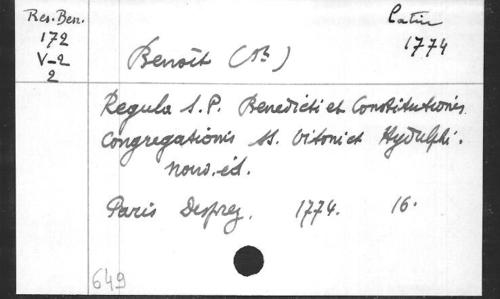 Res. Ben.
172
V-2
2
Latin
1774
Benoît (St)
Regula S. P. Benedicti et Constitutionis
Congregationis SS. Vitoni et Hydulphi.
nouv. éd.
Paris Desprez. 1774. 16.
649